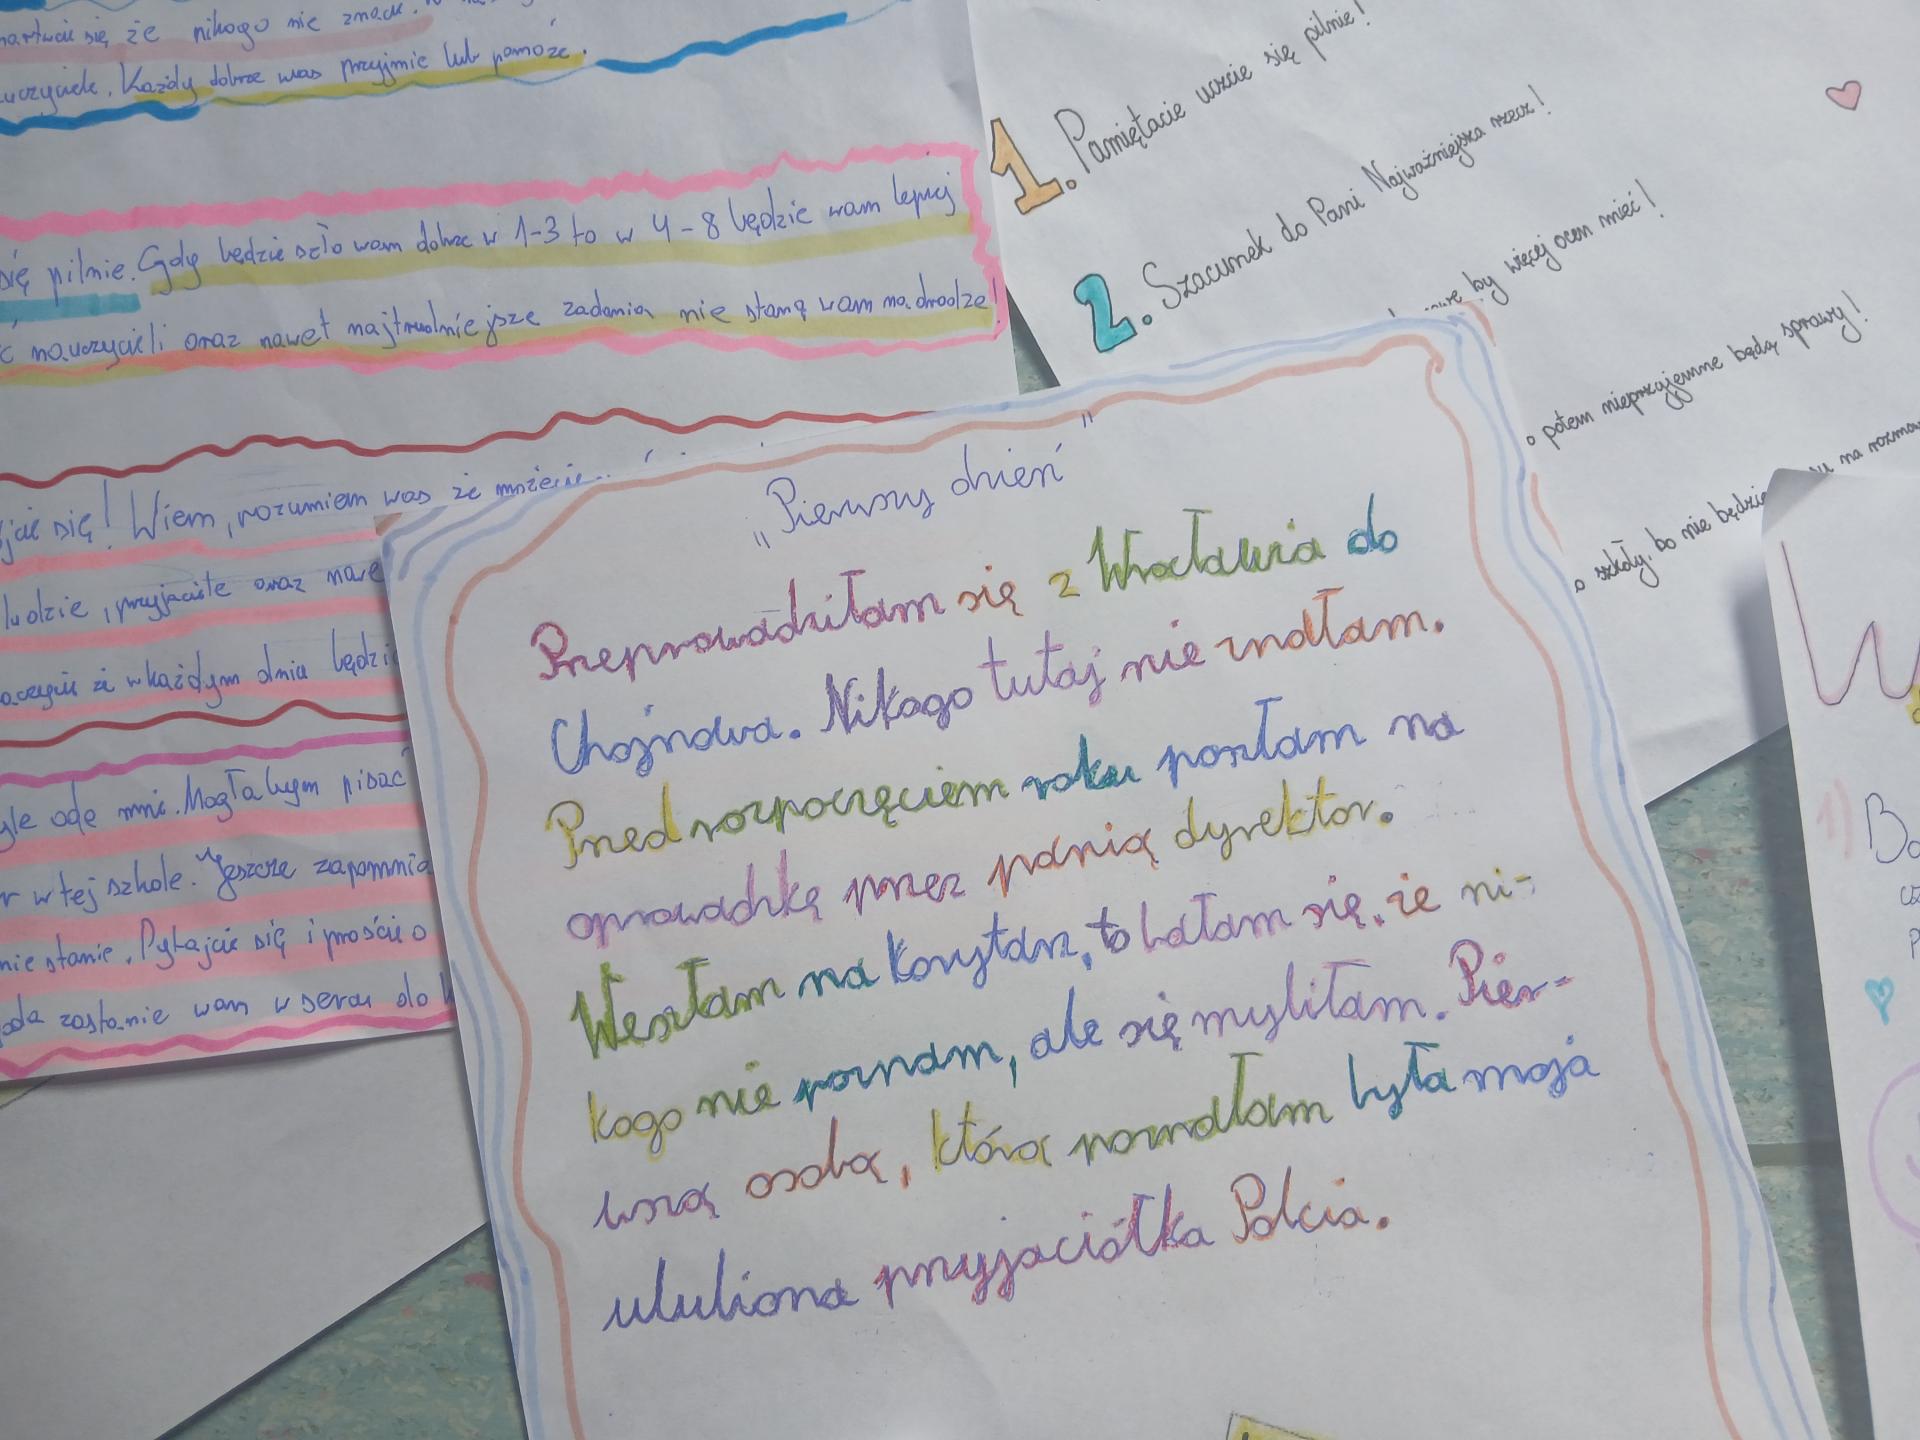 że nikogo nie znacie.
Każdy dobrze was przyjmie lub pomoże.
się pilnie. Gdy będzie szło wam dobrze w 1-3 to w 4-8 będzie wam lepiej
nauczycieli oraz nawet najtrudniejsze zadania nie staną wam na drodze!
się! Wiem, rozumiem was że możecie
ludzie, przyjaciele oraz
że w każdym dniu będzie
odę mnie. Mogłabym pisać
w tej szkole. Jeszcze
nie stanie. Pytajcie się i proście o
zostanie wam w sercu do
1. Pamiętacie uczcie się pilnie!
2. Szacunek do Pani Najważniejsza rzecz!
by więcej ocen mieć!
potem nieprzyjemne będą sprawy!
na
szkoły, bo nie będzie
"Pierwszy dzień"
Przeprowadziłam się z Wrocławia do
Chojnowa. Nikogo tutaj nie znałam.
Przed rozpoczęciem roku poszłam na
oprowadzkę przez panią dyrektor.
Weszłam na korytarz, to bałam się, że ni-
kogo nie poznam, ale się myliłam. Pier-
wszą osobą, którą poznałam była moja
ulubiona przyjaciółka Polcia.
1)